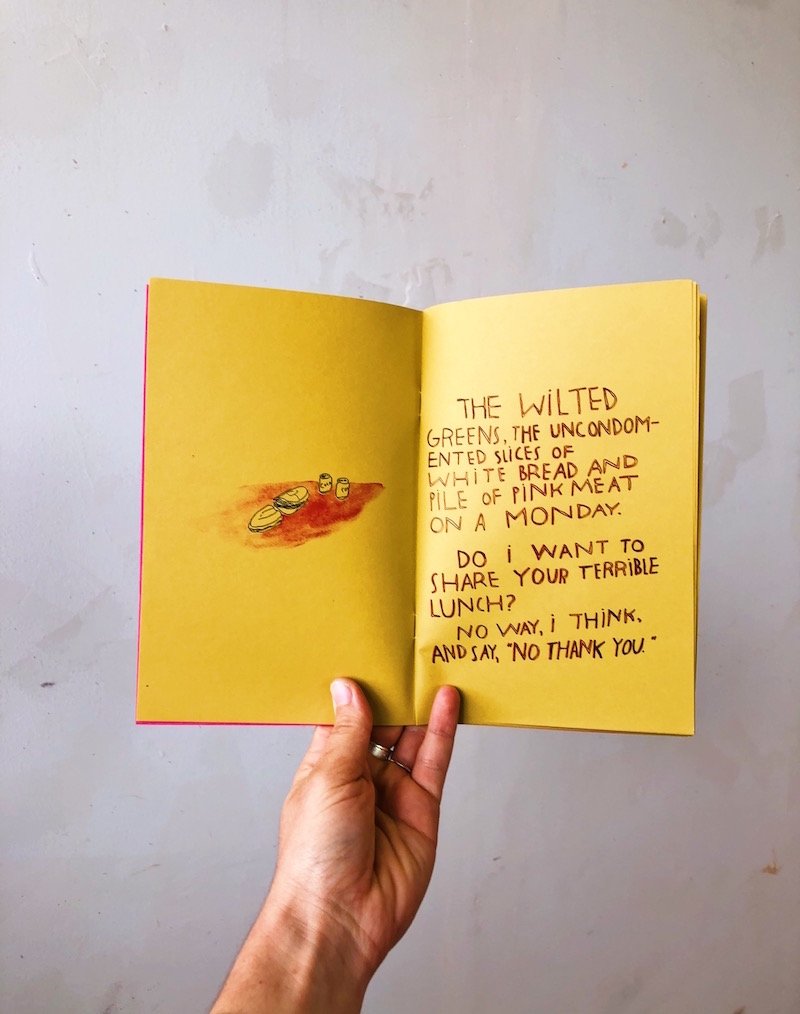 THE WiLTED
GREENS, THE UNCONDOM-
ENTED SLiCES OF
WHiTE BREAD AND
PiLE OF PiNK MEAT
ON A MONDAY.
DO i WANT TO
SHARE YOUR TERRiBLE
LUNCH?
NO WAY, i THiNK,
AND SAY, "NO THANK YOU."